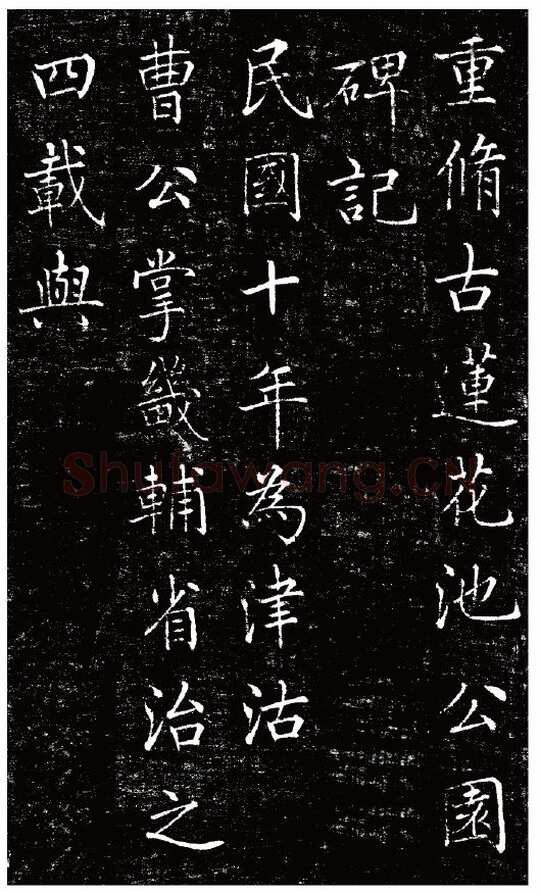 重脩古蓮花池公園
碑記
民國十年為津沽
曹公掌畿輔省治之
四載與
Shufawang.CN